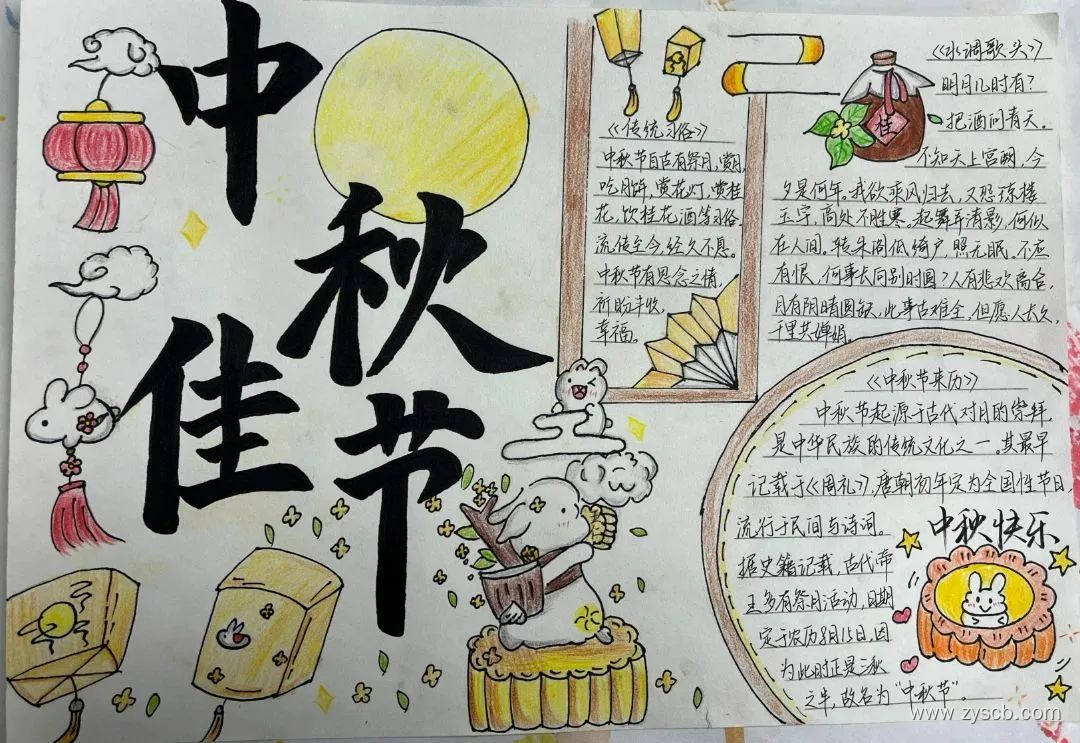 中秋佳节
《传统习俗》
中秋节自古有祭月,赏月,
吃月饼,赏花灯,赏桂
花,饮桂花酒等习俗
流传至今,经久不息。
中秋节有思念之情,
祈盼丰收,
幸福。
桂
《水调歌头》
明月几时有?
把酒问青天。
不知天上宫阙,今
夕是何年。我欲乘风归去,又恐琼楼
玉宇,高处不胜寒。起舞弄清影,何似
在人间。转朱阁低绮户,照无眠。不应
有恨,何事长向别时圆?人有悲欢离合,
月有阴晴圆缺,此事古难全,但愿人长久,
千里共婵娟。
《中秋节来历》
中秋节起源于古代对月的崇拜
是中华民族的传统文化之一。其最早
记载于《周礼》,唐朝初年定为全国性节日
流行于民间与诗词。
据史籍记载,古代帝
王多有祭月活动,日期
定于农历8月15日,因
为此时正是三秋
之半,故名为“中秋节”。
中秋快乐
www.zyscb.com